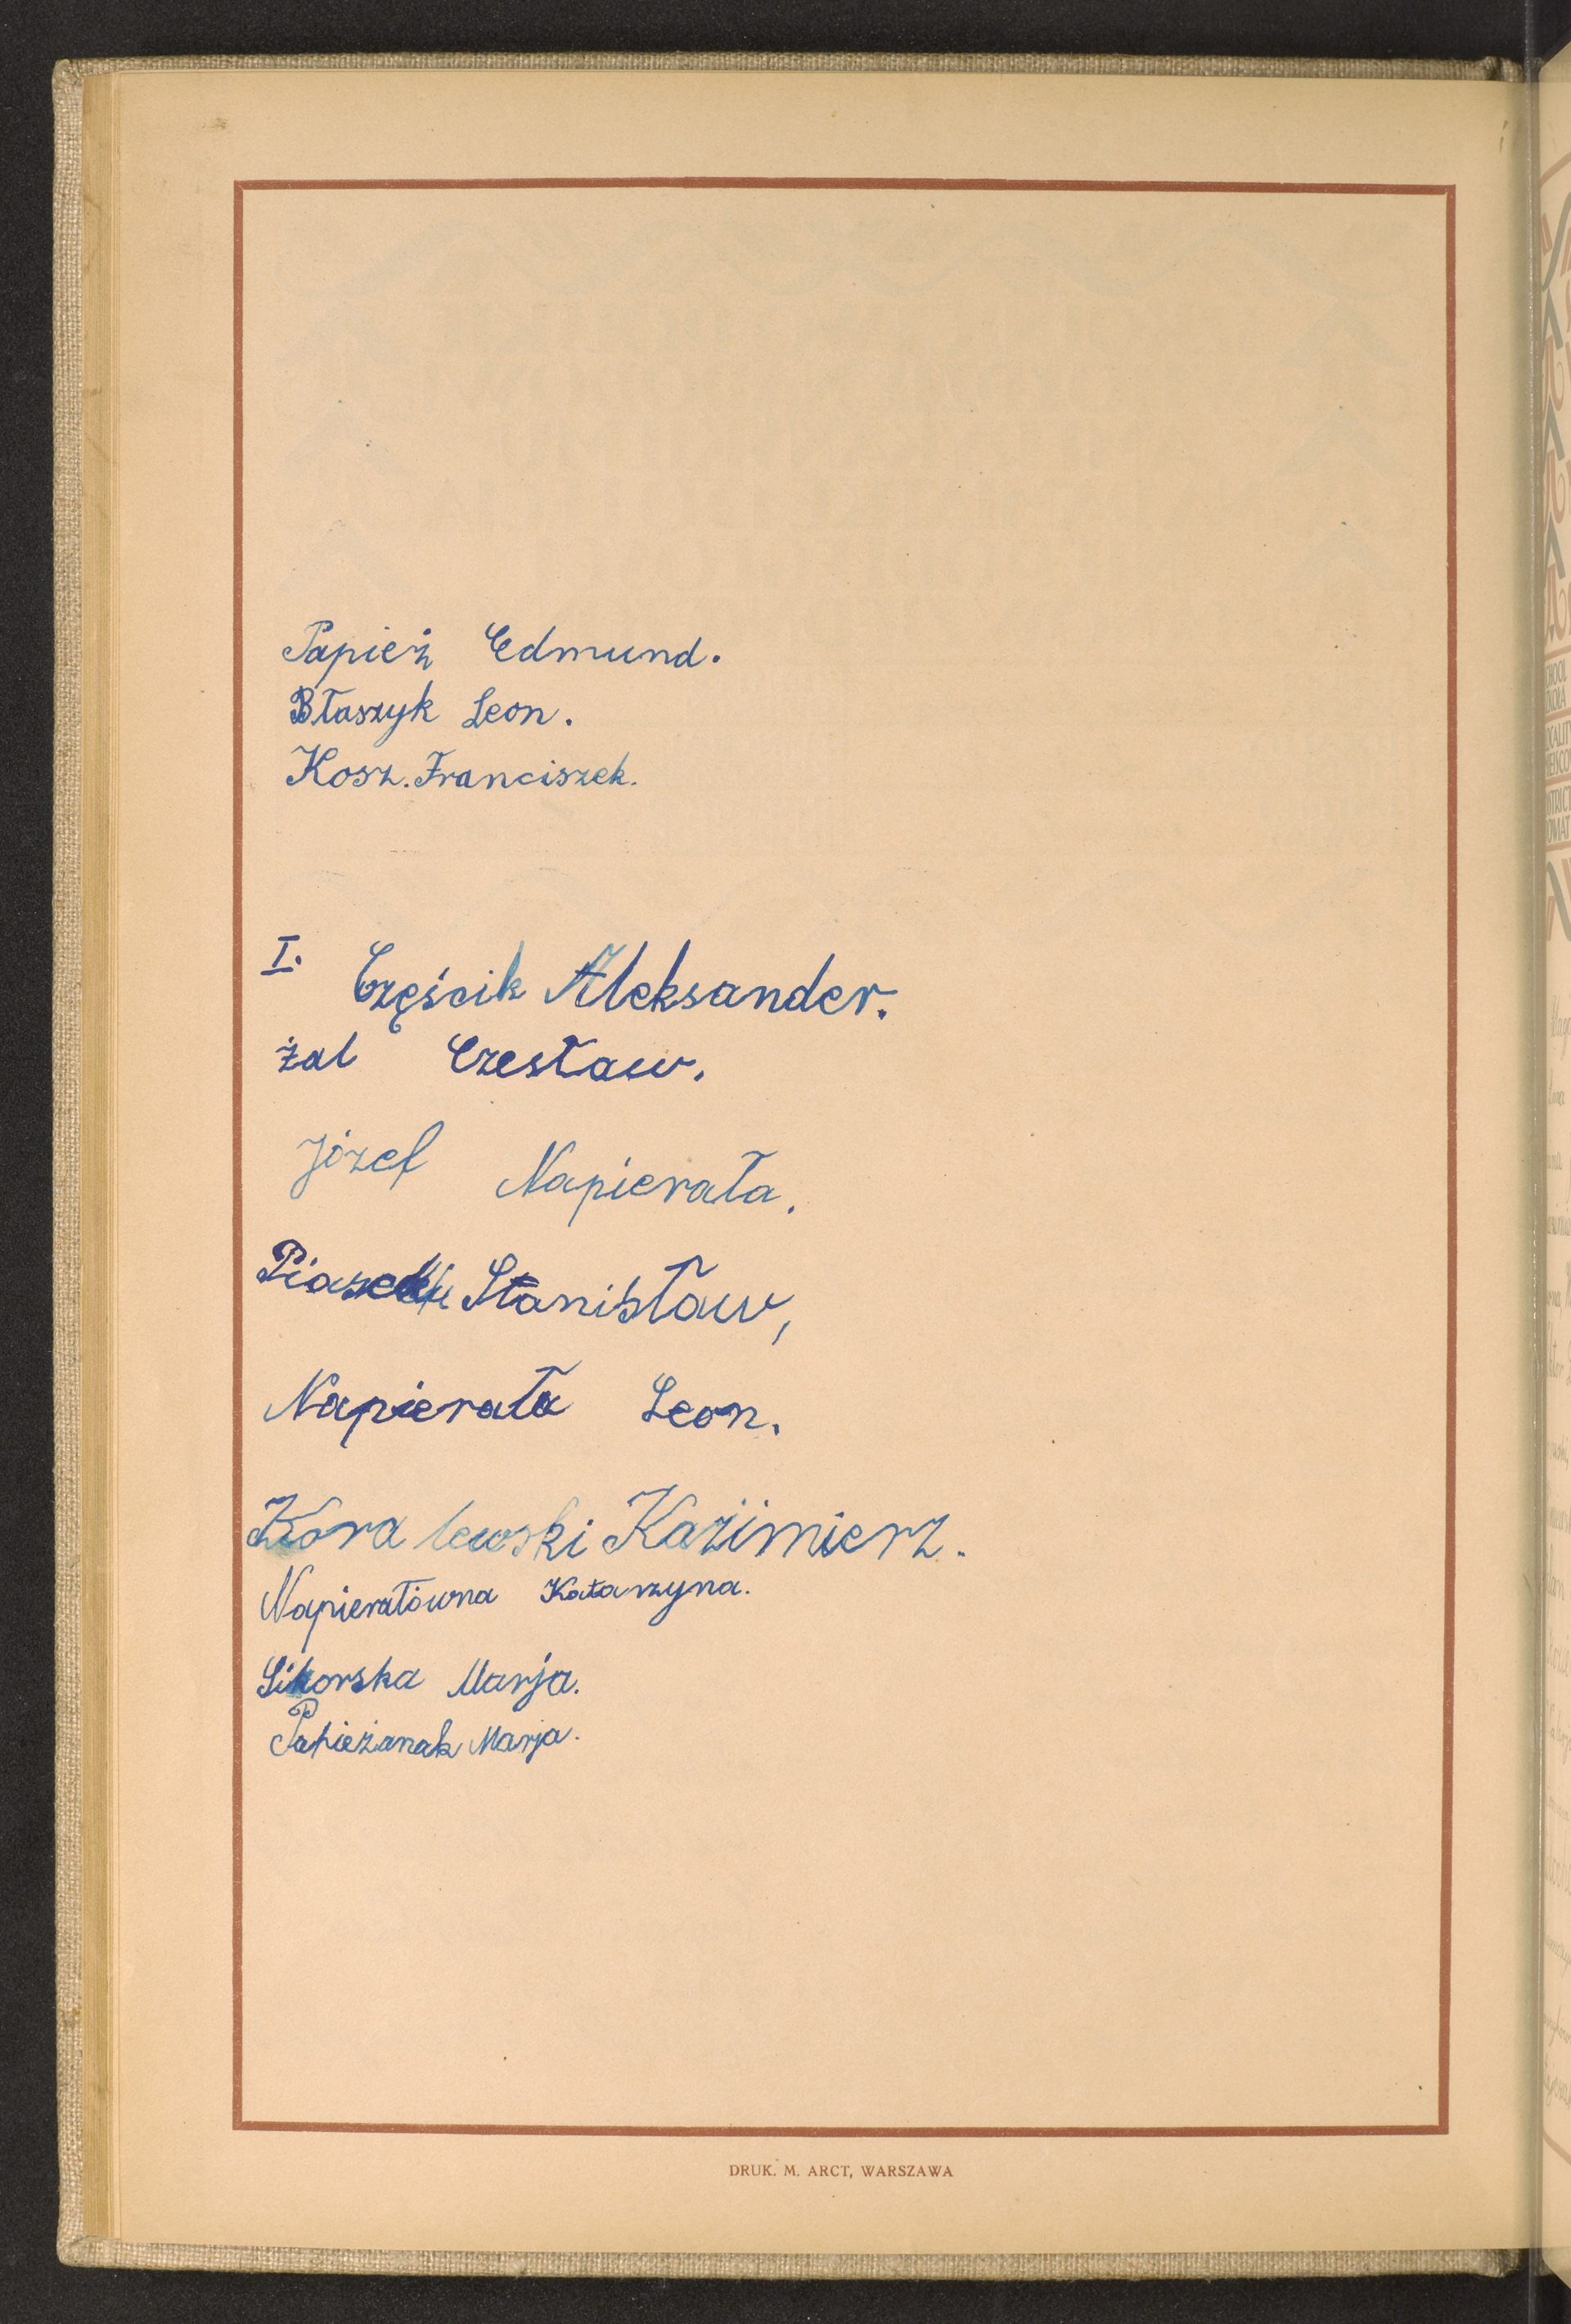 Papież Edmund.
Błaszyk Leon.
Kosz. Franciszek.
I. Częścik Aleksander.
Żal Czesław.
Józef Napierała.
Stanisław,
Napierała Leon.
Kóralewski Kazimierz.
Napierałówna Katarzyna.
Sikorska Marja.
Papieżanak Marja.
DRUK. M. ARCT, WARSZAWA